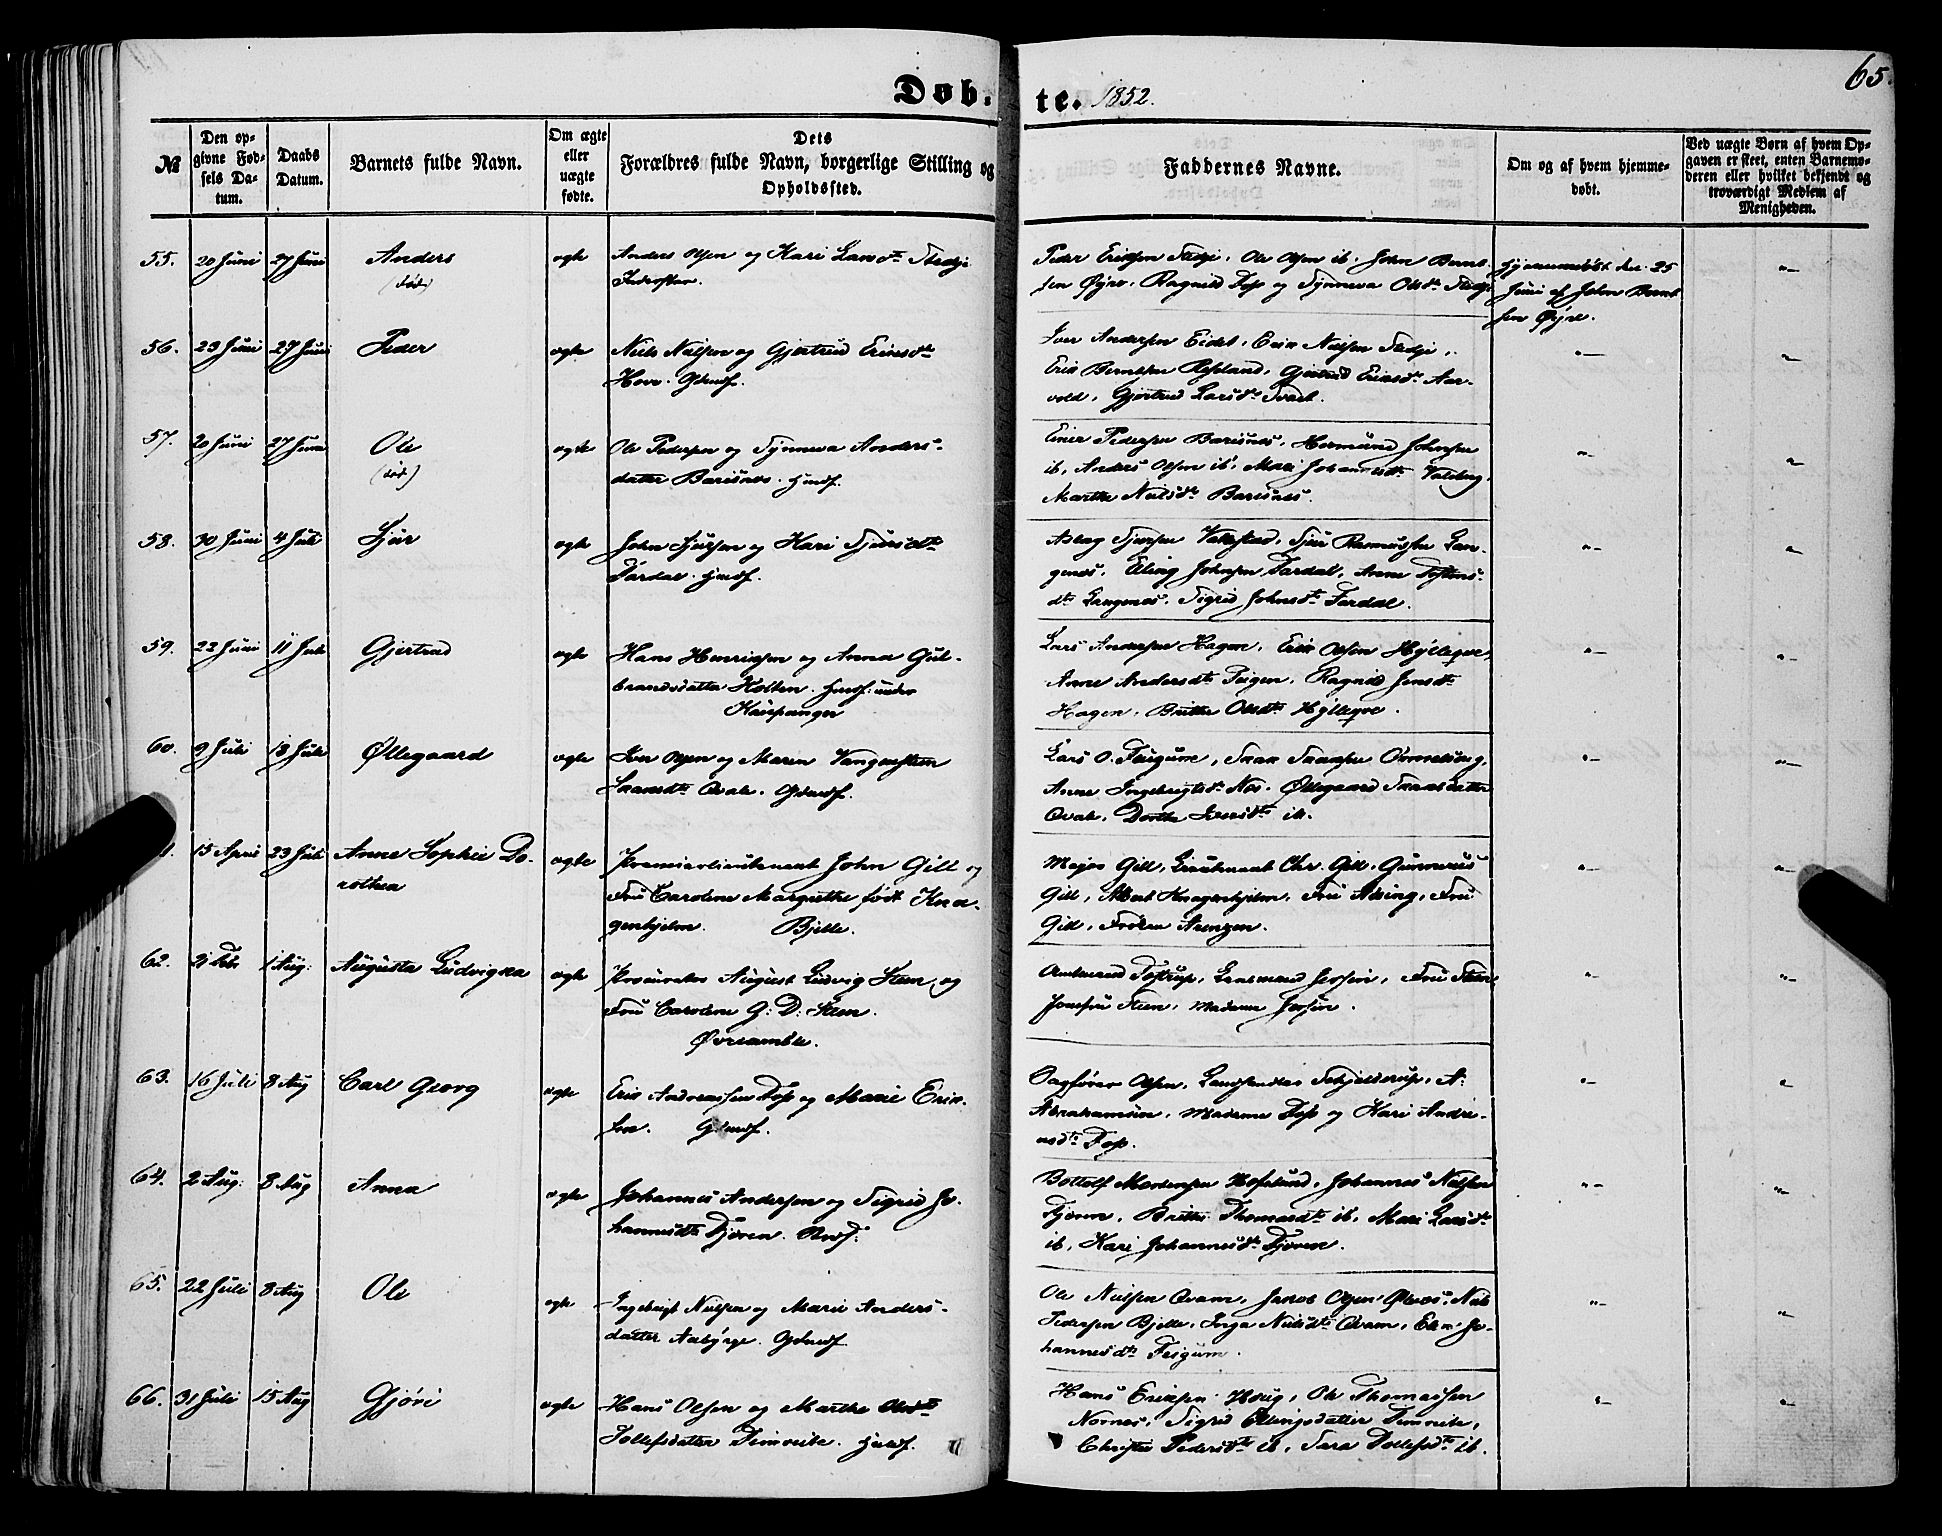 65.
Døb-te. 1852.
№
Den op-
givne Fød-
sels Da-
tum.
Daabs
Datum.
Barnets fulde Navn.
Om ægte
eller
uægte
fødte.
Dets
Forældres fulde Navn, borgerlige Stilling og
Opholdssted.
Faddernes Navne.
Om og af hvem hjemme-
døbt.
Ved uægte Børn af hvem Op-
gaven er skeet, enten Barnemo-
deren eller hvilket bekjendt og
troværdigt Medlem af
Menigheden.
55. 20 Juni 27 Juni Anders ægte Anders Olsen og Kari Larsdtr Stedje
(død)
Peder Eriksen Stedje, Ole Olsen ib. John Bernt-
sen Øyre, Ragnild Dosp og Synneva Olsdtr Stedje
Hjemmedøbt den 25
Juni af John Bernt
sen Øyre.
56. 23 Juni 27 Juni Peder ægte Niels Nielsen og Gjertrud Eriksdtr
Hove. Gbmdf.
Iver Andersen Eidet, Erik Nielsen Stedje,
Erik Berntsen Røsland, Gjertrud Eriksdtr Aar-
vold, Gjertrud Larsdtr
57. 20 Juni 27 Juni Ole ægte Ole Pedersen og Synneva Anders-
(død)
datter Barsnes. Hmdf.
Einer Pedersen Barsnes, Hermund Johnsen
ib, Anders Olsen ib, Mari Johannesdtr
Marthe Nielsdtr Barsnes.
58. 30 Juni 4 Juli Sjur ægte John Sjursen og Kari Sjursdtr
Fardal. Hmdf.
Aslag Sjursen Vallestad, Sjur Rasmussen Lan-
genes, Elling Johnsen Fardal, Anne
dtr Langenes, Sigrid Johnsdtr Fardal.
59. 22 Juni 11 Juli Gjertrud ægte Hans Henriksen og Anna Gul-
brandsdatter Holten. Hmdf: under
Kaupanger
Lars Andersen Hagen, Erik Olsen Hylleqve,
Anne Andersdtr Feigen, Ragnild Jensdtr
Hagen, Brithe Olsdtr Hylleqve.
60. 9 Juli 18 Juli Øllegaard ægte Iver Olsen og Maren Vangensteen
Qvale. Gbmdf.
Lars O. Feigum,
Anne Ingebrigtsdtr Nes. Øllegaard
Qvale, Dorthe Iversdtr ib.
15 April 23 Juli Anne Sophie Do-
rothea
ægte Premierlieutenant John Gill og
Frue Caroline Margrethe født Kna-
genhjelm. Bjelle.
Major Gill, Lieutenant Chr. Gill, Gunnerus
Gill, Albert Knagenhjelm, Frue Alsing, Frue
Gill, Frøken Arentzen.
62. 21 Febr 1 Aug: Augusta Ludvigsea ægte Procurator August Ludvig Steen og
Frue Caroline G: D: Steen.
Øvreamble.
Amtmand Tostrup, Lensmand Jersin, Frue Steen
Josefine Steen, Madame Jersin.
63. 16 Juli 8 Aug Carl Georg ægte Erik Andreassen Dosp og Marie Erik-
sen. Gbmdf.
Sagfører Olsen, Landhandler Schjelderup, A:
Abrahamsen, Madame Dosp og Kari Andre-
asdtr Dosp.
64. 2 Aug: 8 Aug Anna ægte Johannes Andersen og Sigrid Jo-
hannesdtr Fjøren. Smdf:
Bottolf Mortensen Hofslund, Johannes Nielsen
Fjøren, Brithe Thomasdtr ib, Mari Larsdtr
ib, Kari Johannesdtr Fjøren.
65. 22 Juli 8 Aug Ole ægte Ingebrigt Nielsen og Marie Anders-
datter Aabjørge. Gbmdf
Ole Nielsen Qvam, Jacob Olsen Ølnes, Niels
Pedersen Bjelle, Inga Nielsdtr Qvam, Elen Jo-
hannesdtr Feigum.
66. 31 Juli 15 Aug Gjøri ægte Hans Olsen og Marthe
Tollefsdatter Timreite. Hmdf.
Hans Eriksen Houg, Ole Thomassen
Nornes, Sigrid Ellingsdatter Timreite,
Christie Pedersdtr ib, Sara Tollefsdtr ib.